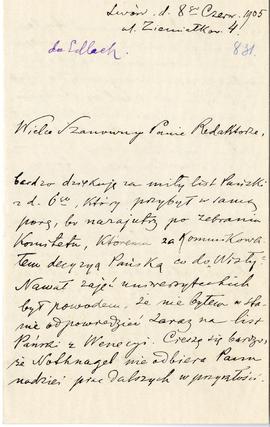 Lwów. d. 8go Czerw. 1905
ul. Ziemiałkow. 4.
do Edlach. 831.
Wielce Szanowny Panie Redaktorze,
bardzo dziękuję za miły list Pański
z d. 6go, który przybył w samą
porę, bo nazajutrz po zebraniu
Komitetu, któremu zakomunikowa-
łem decyzyą Pańską co do Wisły.
Nawał zajęć uniwersyteckich
był powodem, że nie byłem w sta-
nie odpowiedzieć zaraz na list
Pański z Wenecyi. Cieszę się bardzo,
że Nothnagel nie odbiera Panu
nadziei prac dalszych w przyszłości.